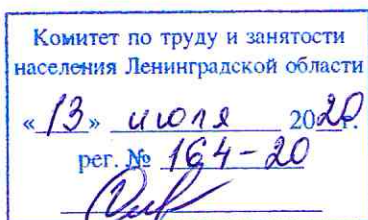 Комитет по труду и занятости
населения Ленинградской области
«13» июля 2020г.
рег. № 164-20